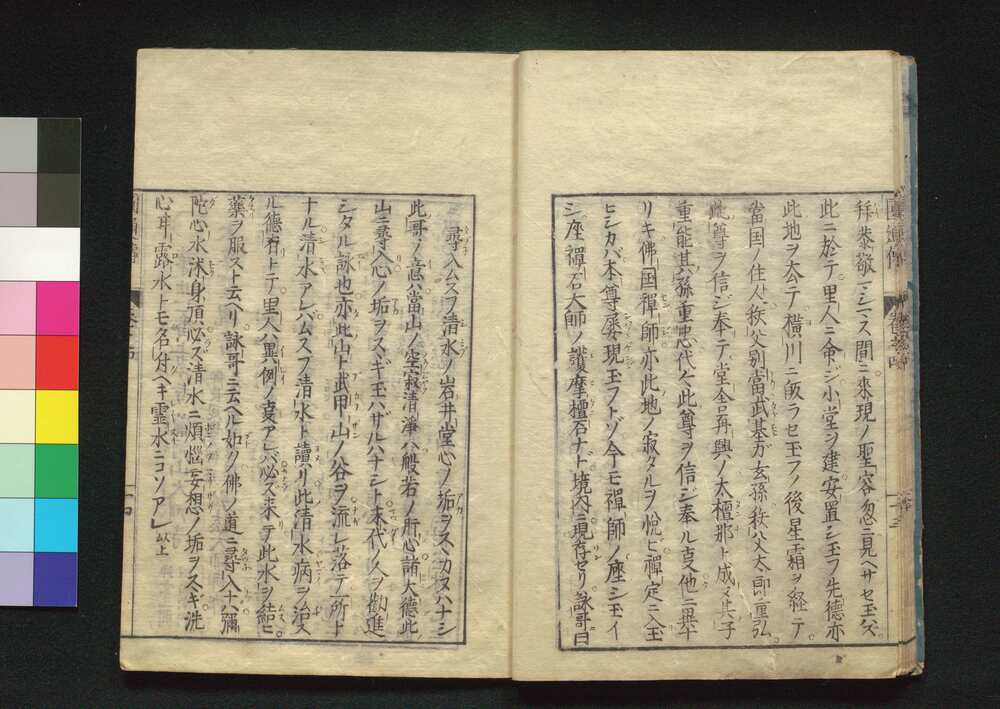 拜恭敬シマス間ニ来現ノ聖容忽ニ見ヘサセ玉ハズ
此ニ於テ里人ニ命ジ小堂ヲ建安置シ玉フ先徳亦
此地ヲ去テ横川ニ皈ラセ玉フノ後星霜ヲ経テ
當国ノ住人秩父別當武基ガ玄孫秩父太郎重弘
此尊ヲ信ジ奉テ堂舎再興ノ大檀那ト成々其子
重能其孫重忠代々此尊ヲ信ジ奉ル亊他ニ異ナ
リキ佛国禪師亦此地ノ寂タルヲ悦ヒ禪定ニ入玉
ヒシカバ本尊屡現玉フトゾ今モ禪師ノ座シ玉イ
シ座禪石大師ノ護摩檀石ナド境内ニ現存セリ詠哥曰
尋入ムスフ清水ノ岩井堂心ノ垢ヲスヽカヌハナシ
此哥ノ意ハ當山ノ空寂清淨ハ般若ノ肝心諸大德此
山ニ尋入心ノ垢ヲスギ玉ハザルハナシト末代ノ人ヲ勸進
シタル詠也亦此山ト武甲山ノ谷ヲ流レ落テ一所ト
ナル清水アレバムスブ清水ト讀リ此清水病ヲ治ス
ル徳有トテ里人ハ異例ノ亊アレバ必ズ来テ此水ヲ結ヒ
藥ヲ服スト云ヘリ詠哥ニ云ヘル如ク佛ノ道ニ尋入ハ彌
陀心水沐身頂必ス清水ニ煩惱妄想ノ垢ヲスギ洗
心耳露水トモ名付ヘキ霊水ニコソアレ以上